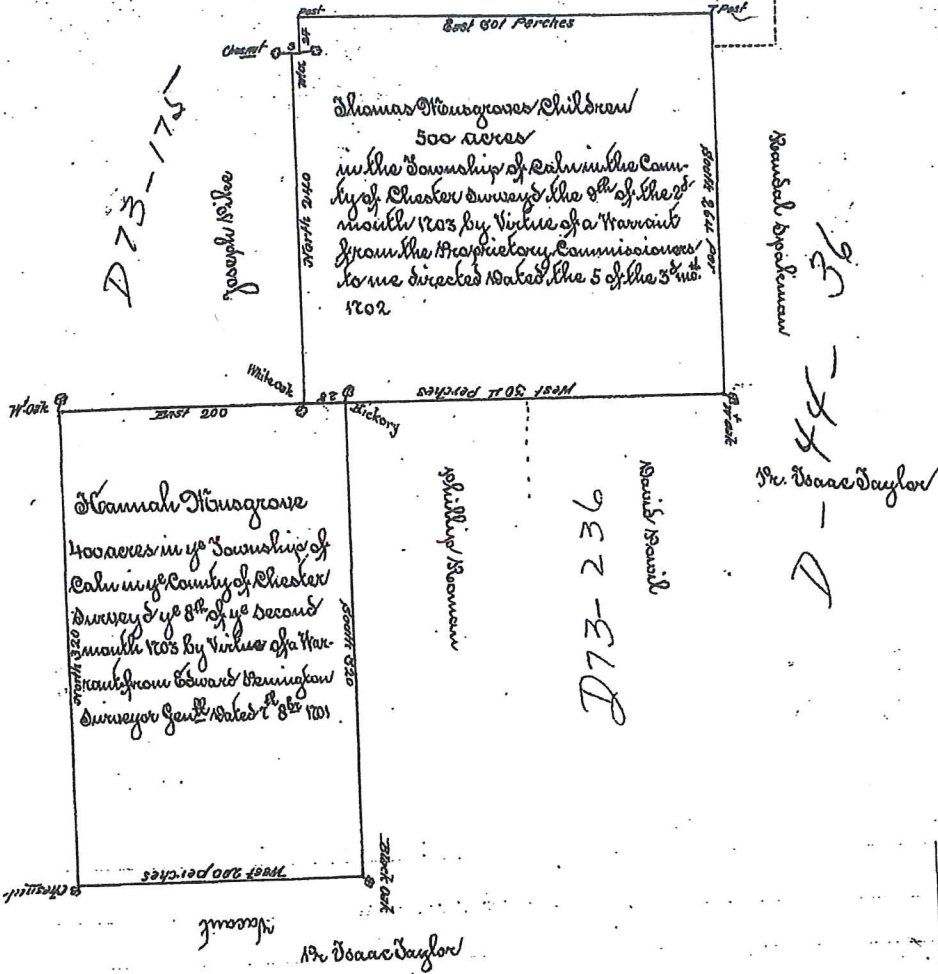 Post
East 301 Perches
Post
Chesnut
3
24
North 240
South 264 Per
Thomas Musgroves Children
500 acres
in the Township of Caln in the Coun-
ty of Chester Surveyd the 9th of the 2d
month 1703 by Virtue of a Warrant
from the Proprietary Commissioners
to me directed Dated the 5 of the 3d mo:
1702
D73-175
Joseph Pike
Randal Spakman
D-44-36
Wt. Oak
East 200
White oak
28
Hickory
West 304 Perches
Wt oak
Pr. Isaac Taylor
Hannah Musgrove
400 acres in ye Township of
Caln in ye County of Chester
Surveyd ye 8th of ye Second
month 1703 by Virtue of a War-
rant from Edward Penington
Surveyor Genll Dated 8br 1701
North 320
South 320
Phillip Roman
D73-236
David
West 200 perches
Chesnut
Black Oak
Vacant
Pr Isaac Taylor